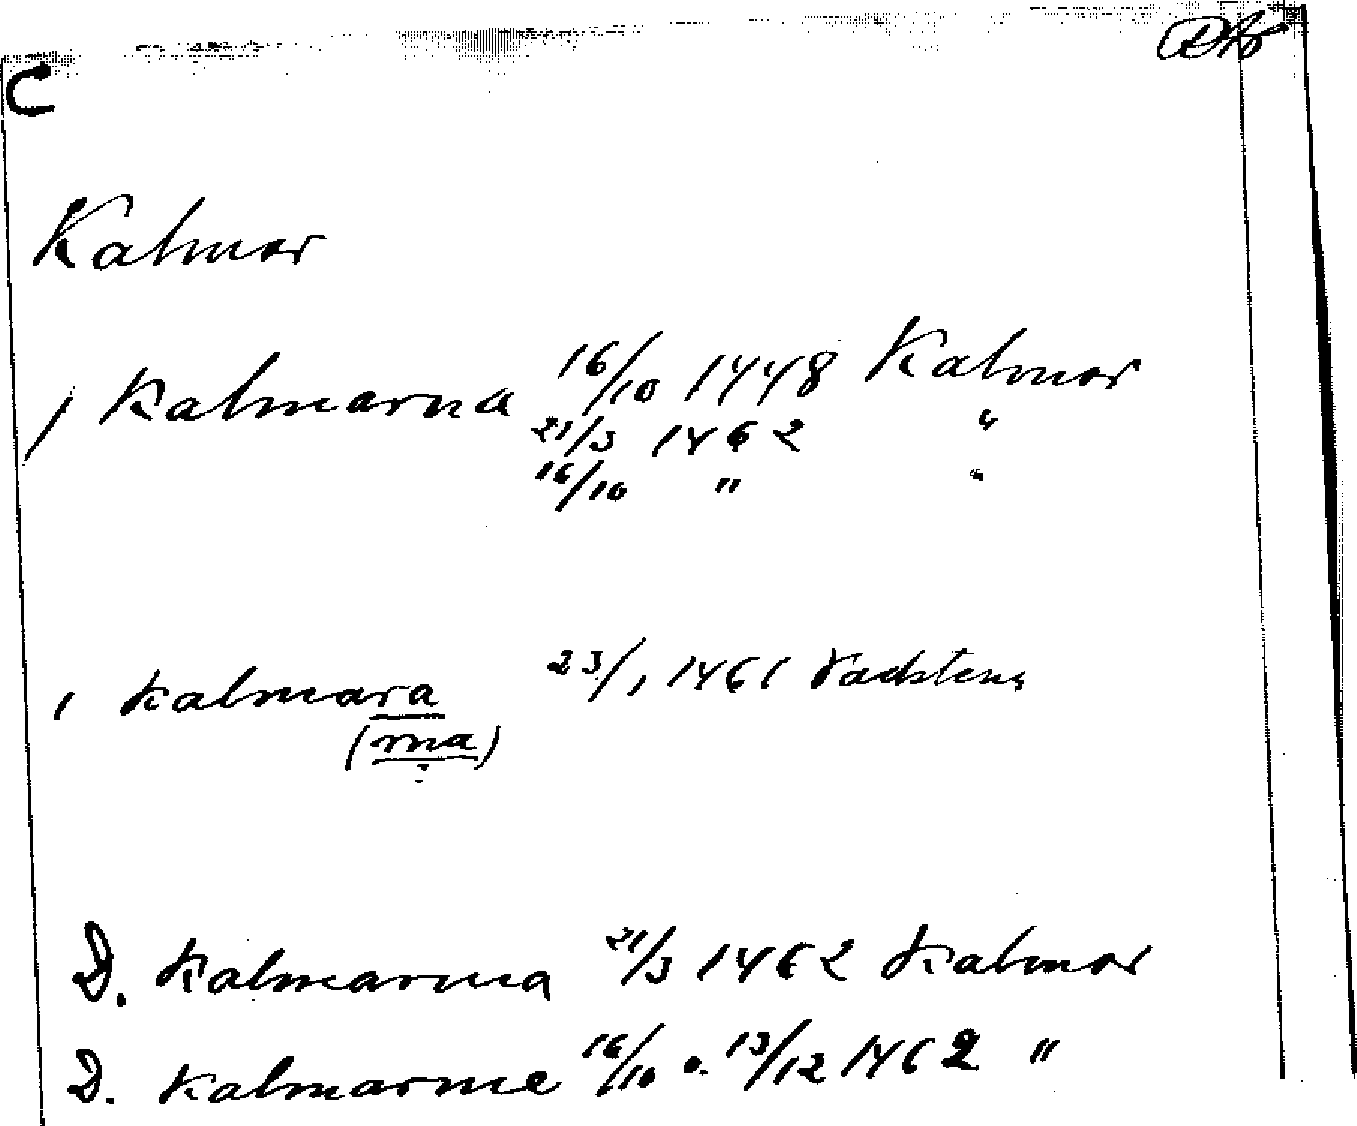 C
Kalmar
/ Kalmarna 16/10 1448 Kalmar
21/3 1462 "
16/10 " "
, kalmara 23/1 1461 Vadstena
(rna)
D. Kalmarna 21/3 1462 Kalmar
D. Kalmarne 16/10 o. 13/12 1462 "